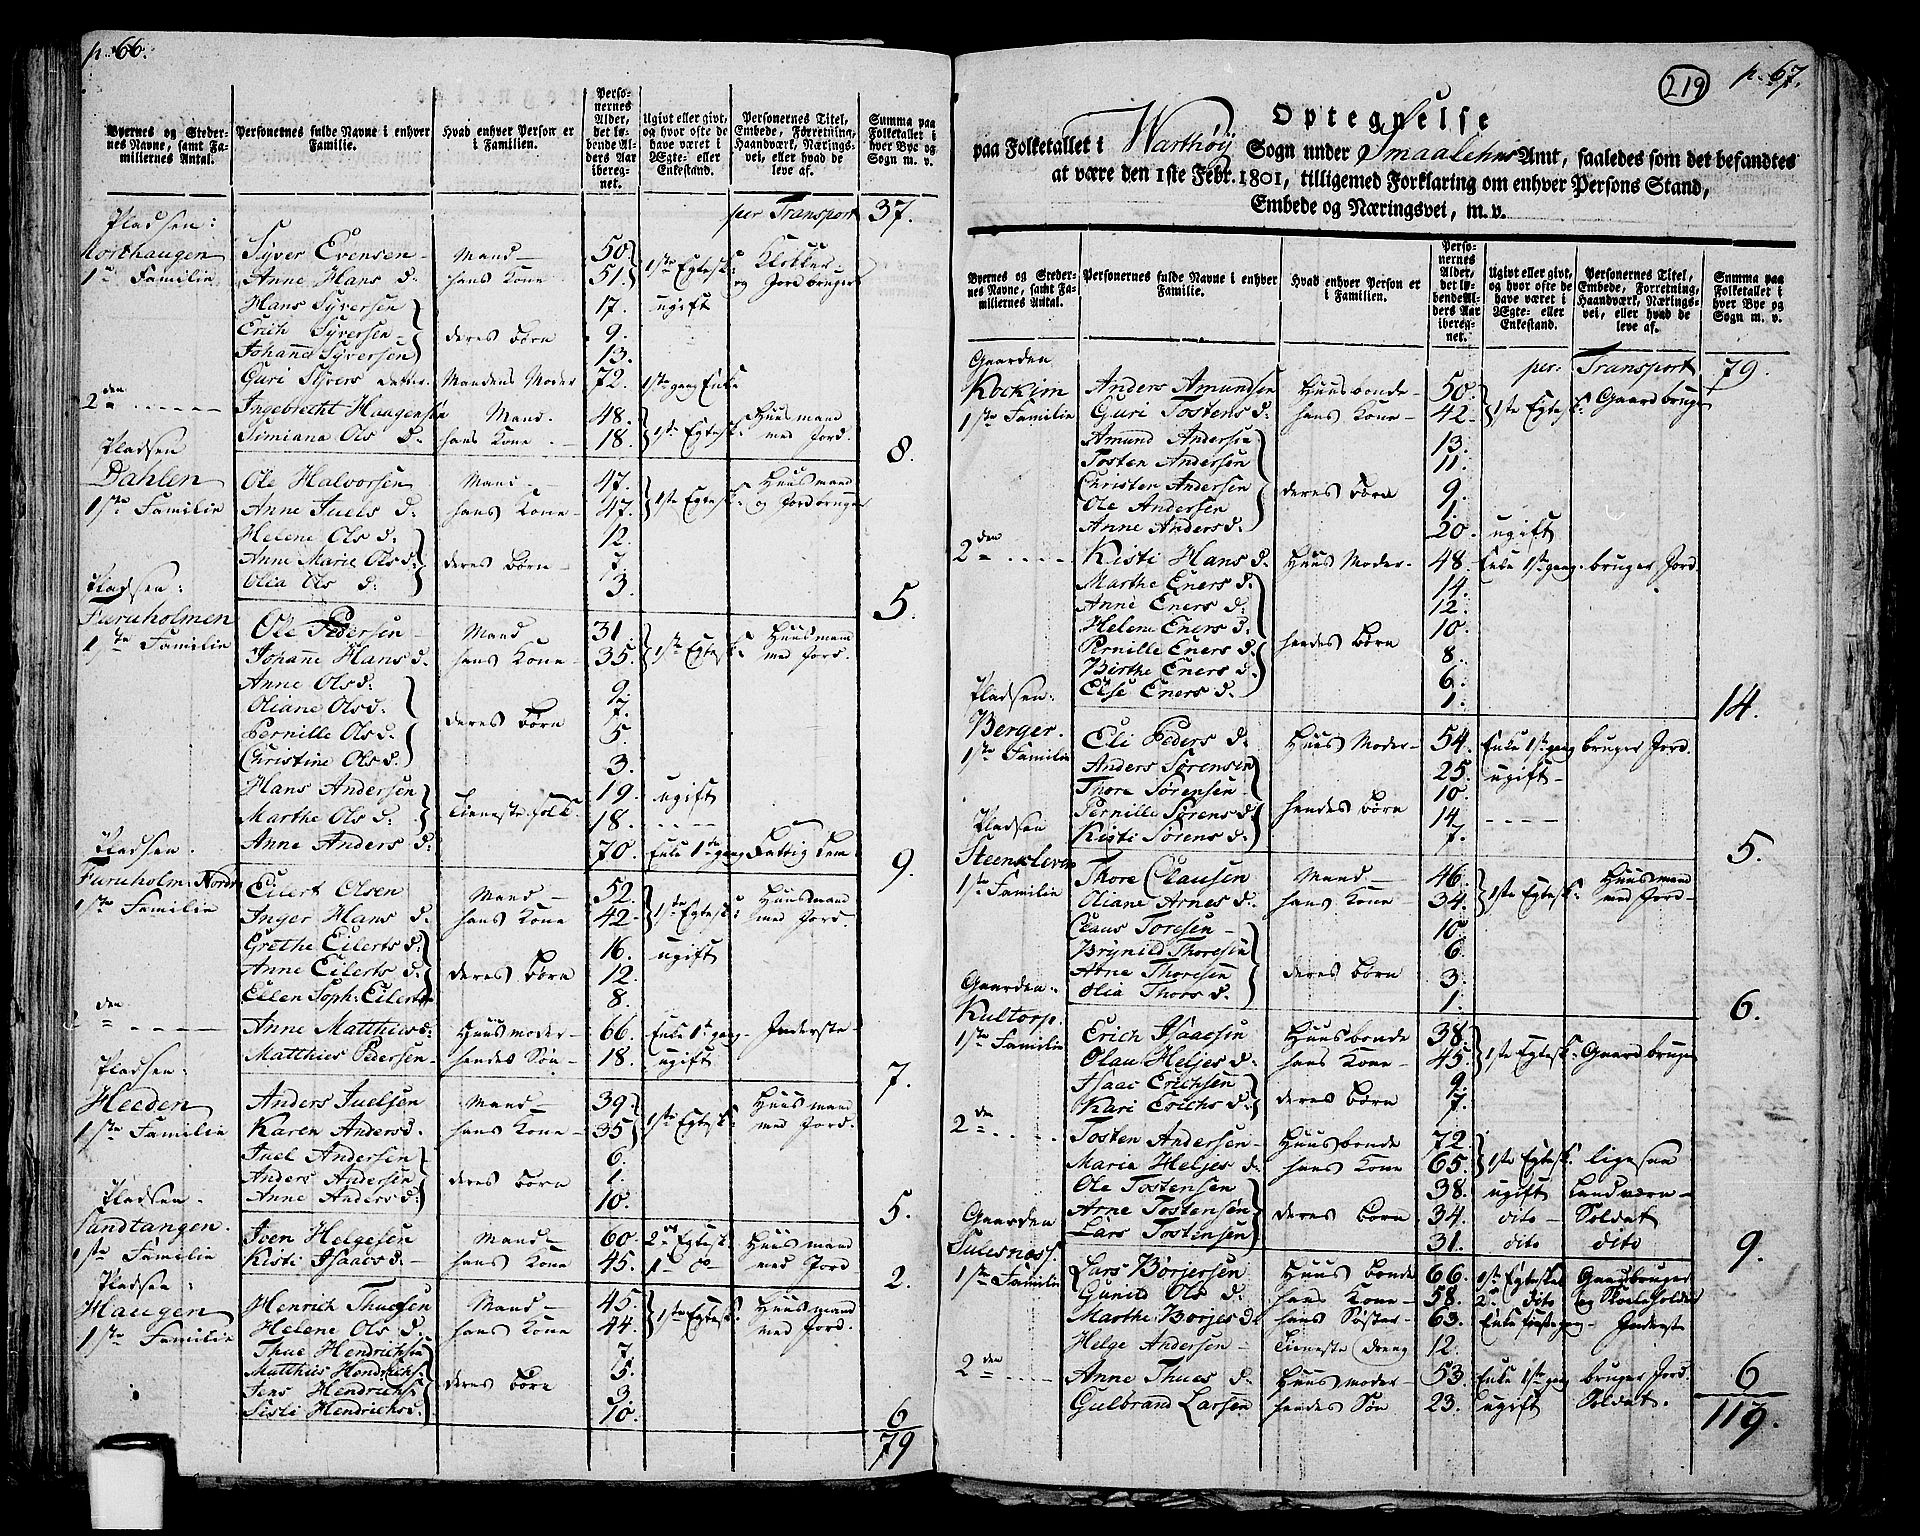 p. 66.
Byernes og Stedernes Navne, samt Familiernes Antal. | Personernes fulde Navne i enhver Familie. | Hvad enhver Person er i Familien. | Personernes Alder, det løbende Alders Aar iberegnet. | Ugivt eller givt, og hvor ofte de have været i Ægte- eller Enkestand. | Personernes Titel, Embede, Forretning, Haandværk, Næringsvei, eller hvad de leve af. | Summa paa Folketallet i hver Bye og Sogn m. v.
Pladsen: per Transport 37.
Morthaugen Syver Evensen Mand 50 1ste Egtesk:
1te Familie Anne Hans d. hans Kone 51. og Jordbruger
Hans Syversen 17. ugift
Erich Syversen deres Børn 9.
Johanne Syversen 13.
Guri Syvers datter Mandens Moder 72. 1ste gang Enke
2den Ingebrecht Haugensen Mand 48. 1ste Egtesk: Huusmand
Simiana Ols d. hans Kone 18. med Jord. 8.
Pladsen
Dahlen Ole Halvorsen Mand 47. 1ste Egtesk: Huusmand
1ste Familie Anne Juels d. hans Kone 47. og Jordbruger
Helene Ols d. 12.
Anne Marie Ols d. deres Børn 7.
Olia Ols d. 3. 5.
Pladsen:
Furuholmen Ole Pedersen Mand 31. 1ste Egtesk: Huusmand
1ste Familie Johanne Hans d. hans Kone 35. med Jord.
Anne Ols d. 9.
Oliane Ols d. deres Børn 7.
Pernille Ols d. 5.
Christine Ols d. 3.
Hans Andersen Tieneste folk 19. ugift
Marthe Ols d. 18.
Anne Anders d. 70. Enke 1te gang Fattig Lem 9.
Pladsen.
Furuholm: Nordre Eilert Olsen Mand 52. 1ste Egtesk: Huusmand
1ste Familie Inger Hans d. hans Kone 42. med Jord.
Grethe Eilerts d. 16. ugift
Anne Eilerts d. deres Børn 12.
Ellen Soph: Eilerts 8.
2den Anne Matthies d. Huusmoder 66. Enke 1te gang Inderste
Matthies Pedersen hendes Søn 18. ugift 7.
Pladsen:
Heeden Anders Juelsen Mand 39. 1ste Egtesk: Huusmand
1ste Familie Karen Anders d. hans Kone 35. med Jord.
Juel Andersen 6.
Anders Andersen deres Børn 1.
Anne Anders d. 10. 5.
Pladsen.
Sandtangen. Iven Helgesen Mand 60. 2den Egtesk: Huusmand
1ste Familie Kisti Isaacs d. hans Kone 45. 1 do med Jord 2.
Pladsen:
Haugen Henrich Thuesen Mand 45. 1ste Egtesk: Huusmand
1ste Familie Helene Ols d. hans Kone 44. med Jord.
Thue Hendrichsen 7.
Matthies Hendrichs: deres Børn 5.
Jens Hendrichs: 3.
Sisli Hendrichs d. 10. 6
79
219
p. 67.
Optegnelse
paa Folketallet i Warthøy Sogn under Smaalehns Amt, saaledes som det befandtes
at være den 1ste Febr. 1801, tilligemed Forklaring om enhver Persons Stand,
Embede og Næringsvei, m. v.
Byernes og Stedernes Navne, samt Familiernes Antal. | Personernes fulde Navne i enhver Familie. | Hvad enhver Person er i Familien. | Personernes Alder, det løbende Alders Aar iberegnet. | Ugivt eller givt, og hvor ofte de have været i Ægte- eller Enkestand. | Personernes Titel, Embede, Forretning, Haandværk, Næringsvei, eller hvad de leve af. | Summa paa Folketallet i hver Bye og Sogn m. v.
Gaarden per: Transport 79.
Kockim Anders Amundsen Huusbonde 50. 1te Egtesk: Gaardbruger
1ste Familie Guri Tostens d. hans Kone 42.
Amund Andersen 13.
Tosten Andersen 11.
Christen Andersen deres Børn 9.
Ole Andersen 1.
Anne Anders d. 20. ugift
2den Kisti Hans d. Huus Moder 48. Enke 1ste gang bruger Jord.
Marthe Eners d. 14.
Anne Eners d. 12.
Helene Eners d. hendes Børn 10.
Pernille Eners d. 8.
Birthe Eners d. 6.
Else Eners d. 1. 14.
Pladsen:
Berger. Eli Peders d. Huus Moder 54. Enke 1ste gang bruger Jord.
1ste Familie Anders Sørensen 25. ugift
Thore Sørensen hendes Børn 10.
Pernille Sørens d. 14.
Kisti Sørens d. 7. 5.
Pladsen
Steenskleven Thore Clausen Mand 46. 1ste Egtesk: Huusmand
1ste Familie Oliane Arnes d. hans Kone 34. med Jord
Claus Toresen 10.
Brynild Thoresen deres Børn 6.
Arne Thoresen 3.
Olia Thors d. 1. 6.
Gaarden.
Kultorp. Erich Isaacsen Huusbonde 38. 1ste Egtesk: Gaardbruger
1ste Familie Olau Heljes d. hans Kone 45.
Isaac Erichsen deres Børn 9.
Kari Erichs d. 7.
2den Tosten Andersen Huusbonde 72. 1ste Egtesk: ligesaa
Maria Heljes d. hans Kone 65.
Ole Tostensen 38. ugift Landværn
Arne Tostensen deres Børn 34. dito Soldat
Lars Tostensen 31. dito dito 9.
Gaarden
Sulesnøss. Lars Børjersen Huus bonde 66. 1ste Egteske Gaardbruger
1ste Familie Gunild Ols d. hans Kone 58. 2de dito og Skoeleholder
Marthe Børjes d. hans Søster 63. Enke første gang Inderste
Helge Andersen Tieneste Dreng 12.
2den Anne Thues d. Huusmoder 53. Enke 1ste gang bruger Jord. 6
Gulbrand Larsen hendes Søn 23. ugift Soldat.
119.